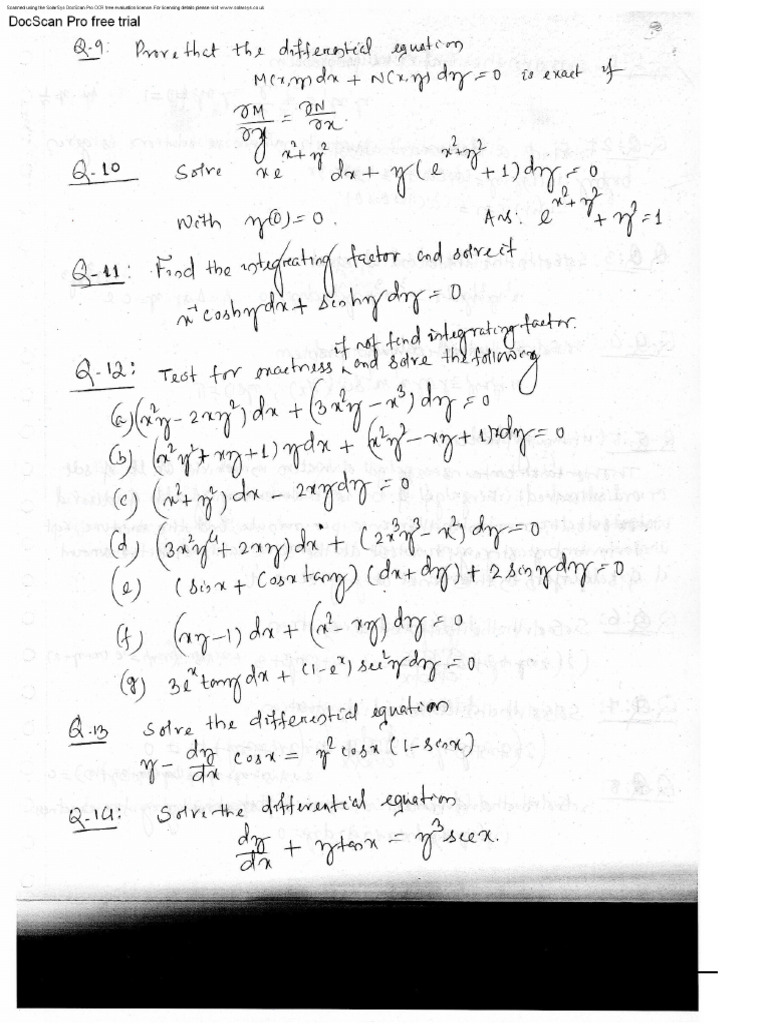 Scanned using the SolarSys DocScan Pro OCR free evaluation licence. For licencing details please visit www.solarsys.co.uk
DocScan Pro free trial
Q.9: Prove that the differential equation
M(x,y)dx + N(x,y)dy = 0 is exact if
∂M/∂y = ∂N/∂x.
Q.10 Solve xe^(x²+y²) dx + y(e^(x²+y²) + 1)dy = 0
With y(0) = 0. Ans: e^(x²+y²) + y² = 1
Q.11: Find the integreating factor and solve it
x⁻¹coshydx + sinhydy = 0
Q.12: Test for exactness if not find integrating factor. and solve the following
(a) (x²y - 2xy²)dx + (3x²y - x³)dy = 0
(b) (x²y² + xy + 1) ydx + (x²y² - xy + 1)xdy = 0
(c) (x² + y²)dx - 2xydy = 0
(d) (3x²y⁴ + 2xy)dx + (2x³y³ - x²)dy = 0
(e) (sinx + Cosx tany)(dx + dy) + 2 sinydy = 0
(f) (xy - 1)dx + (x² - xy)dy = 0
(g) 3eˣtanydx + (1-eˣ)sec²ydy = 0
Q.13 Solve the differential equation
y - dy/dx cosx = y²cosx(1-sinx)
Q.14: Solve the differential equation
dy/dx + ytanx = y³secx.